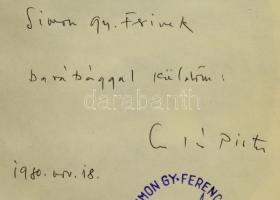 Simon Gy. Ferinek
barátsággal küldöm:
1980. nov. 18.
darabanth
SIMON GY. FERENC